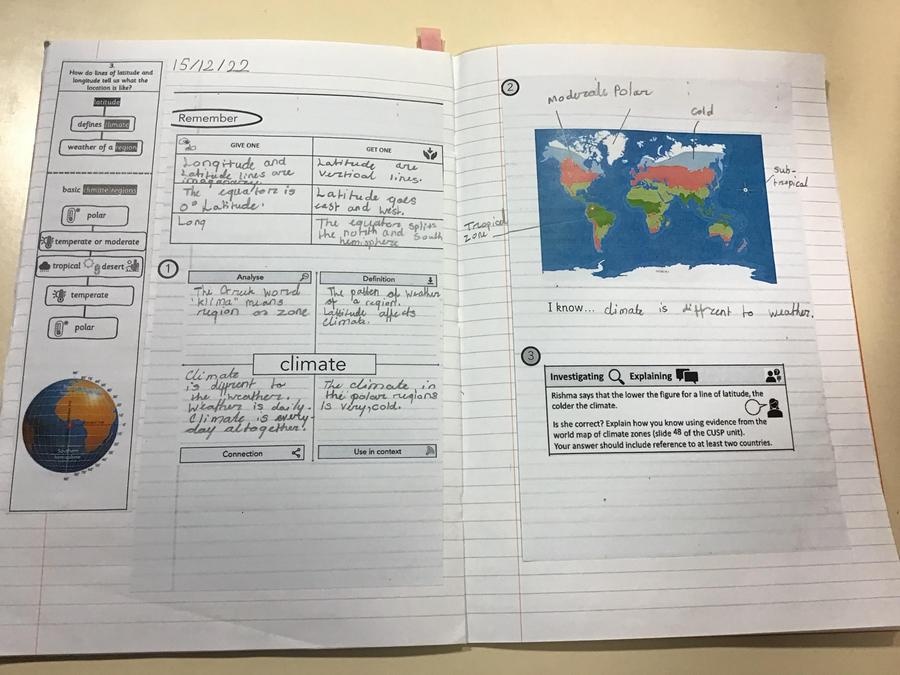 3.
How do lines of latitude and
longitude tell us what the
location is like?
latitude
defines climate
weather of a region
basic climate regions
polar
temperate or moderate
tropical desert
temperate
polar
15/12/22
Remember
GIVE ONE
GET ONE
Longitude and
Latitude lines are
Latitude are
vertical lines.
The equator is
0° Latitude.
Latitude goes
east and west.
Long
The equator splits
the north and south
hemisphere
1
Analyse
Definition
The Greek word
"klima" means
region or zone
The patten of weather
of a region.
Latitude affects
climate.
climate
Climate
is diffrent to
the weather.
Weather is daily.
Climate is every-
day altogether.
The climate in
the polar regions
Is very cold.
Connection
Use in context
2
Moderate Polar
cold
sub-
tropical
Tropical
zone
I know... climate is diffrent to weather.
3
Investigating Explaining
Rishma says that the lower the figure for a line of latitude, the
colder the climate.
Is she correct? Explain how you know using evidence from the
world map of climate zones (slide 48 of the CUSP unit).
Your answer should include reference to at least two countries.